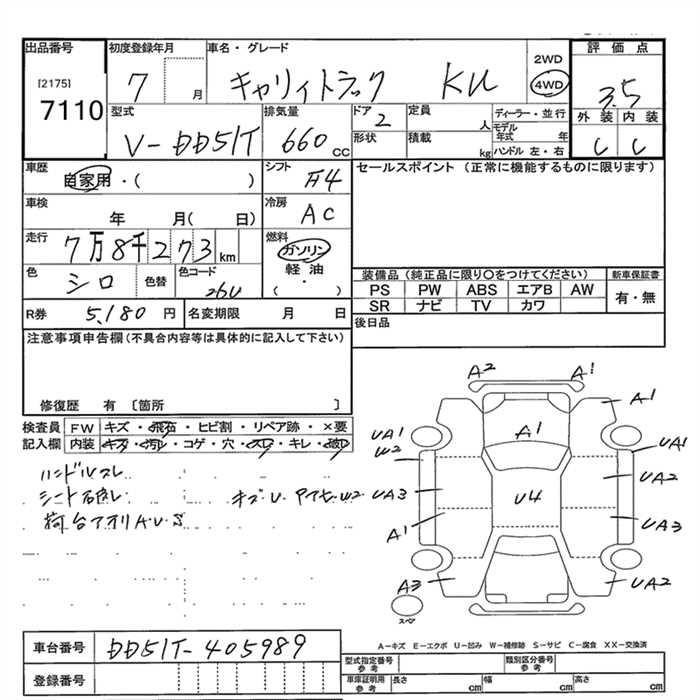 出品番号
[2175]
7110
初度登録年月
7 月
車名・グレード
キャリィトラック KU
2WD
4WD
評価点
3.5
外装 内装
C C
型式
V-DD51T
排気量
660 CC
ドア
2
形状
定員
人
積載
kg
ディーラー・並行
モデル年式 年
ハンドル 左・右
車歴
自家用・( )
シフト
F4
セールスポイント (正常に機能するものに限ります)
車検
年 月( 日)
冷房
AC
走行
7万8千273km
燃料
ガソリン
軽油
( ・ )
色
シロ
色替
色コード
26U
装備品 (純正品に限り○をつけてください)
PS PW ABS エアB AW
SR ナビ TV カワ
新車保証書
有・無
R券 5,180 円
名変期限 月 日
後日品
注意事項申告欄 (不具合内容等は具体的に記入して下さい)
修復歴 有 〔箇所 〕
検査員 FW キズ・飛石・ヒビ割・リペア跡・×要
記入欄 内装 キズ・汚レ・コゲ・穴・スレ・キレ・破レ
ハンドルスレ
シート破レ
キズ U
荷台アオリ A・U・S
A2
A1
A1
A1
UA1
W2
UA1
UA2
UA3
U4
A1
UA3
A3
UA2
スペア
A-キズ E-エクボ U-凹み W-補修跡 S-サビ C-腐食 XX-交換済
車台番号 DD51T-405989
登録番号
型式指定番号 参考
類別区分番号 参考
車庫証明用 参考
長さ cm
幅 cm
高さ cm